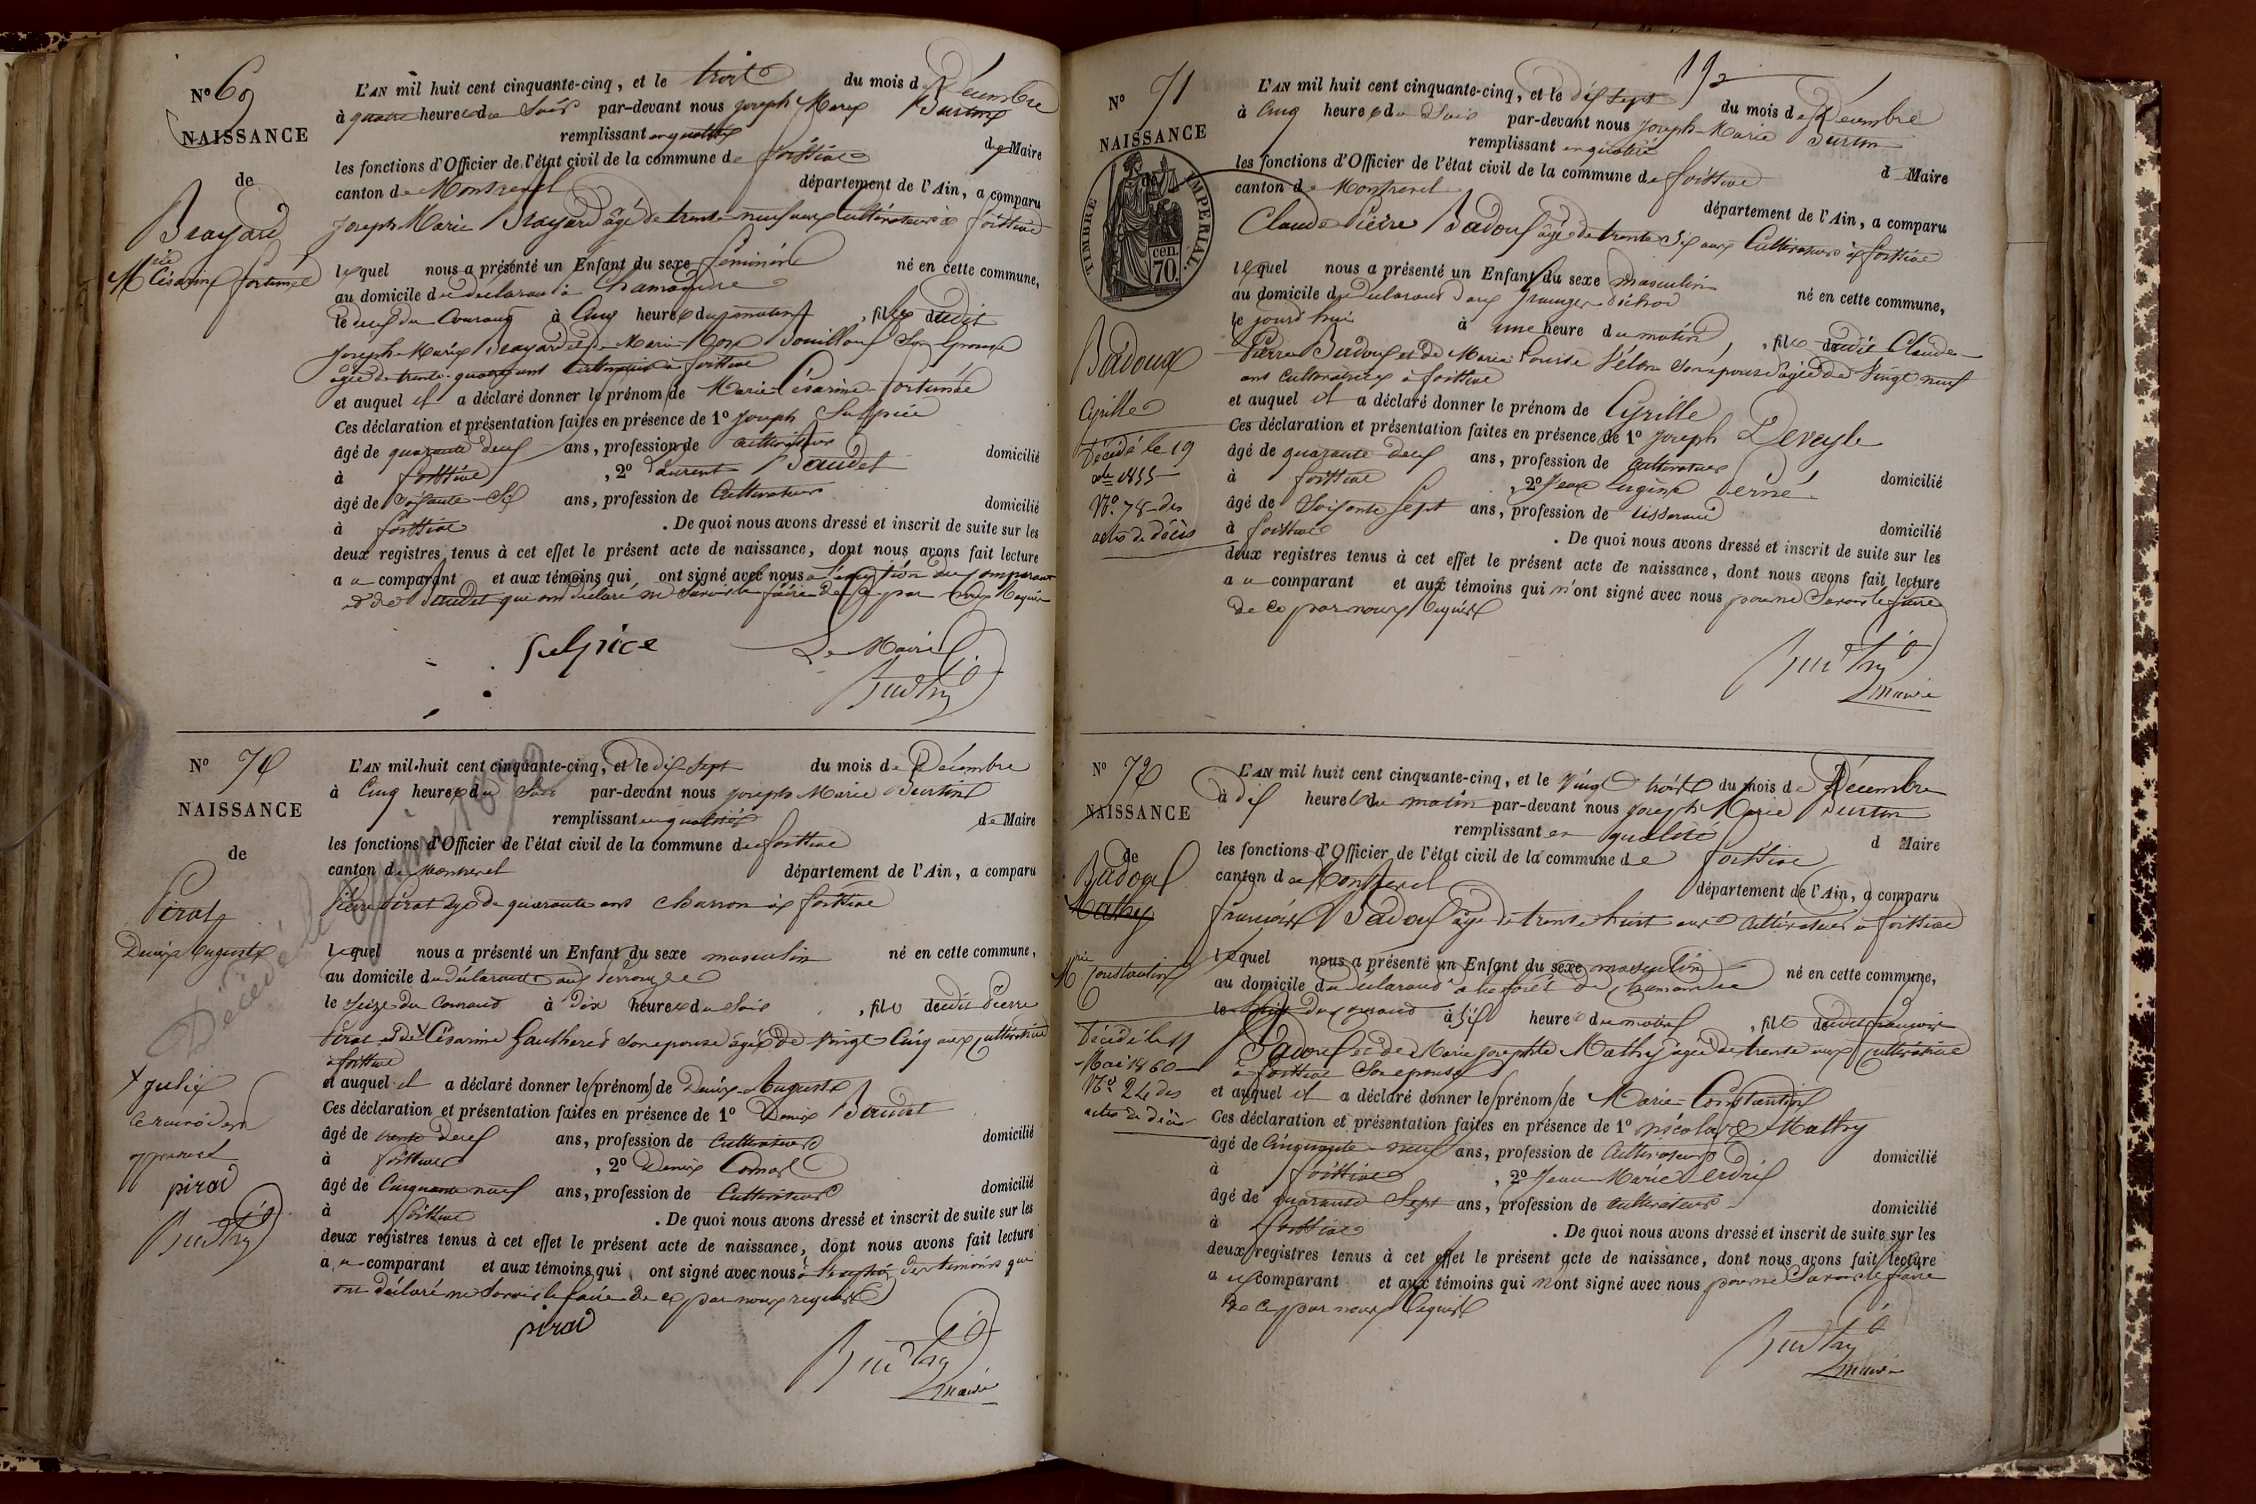 N° 69
NAISSANCE
de
Brayard
Mie Césarine fortunée
L'AN mil huit cent cinquante-cinq, et le trois du mois de Décembre
à quatre heures du Soir par-devant nous Joseph Marie Burtin
remplissant en qualité de Maire
les fonctions d'Officier de l'état civil de la commune de foissiat
canton de Montrevel département de l'Ain, a comparu
Joseph Marie Brayard âgé de trente neuf ans Cultivateur à foissiat
lequel nous a présenté un Enfant du sexe féminin né en cette commune,
au domicile du déclarant à Chamandre
le deux du Courant à Cinq heures du matin, fille dudit
Joseph-Marie Brayard et de Marie-Rose Bouilloux Son Epouse
âgée de trente-quatre ans Cultivatrice à foissiat
et auquel il a déclaré donner le prénom de Marie Césarine fortunée
Ces déclaration et présentation faites en présence de 1° Joseph Sulpice
âgé de quarante deux ans, profession de cultivateur domicilié
à foissiat, 2° Laurent Baudet
âgé de Soixante-Six ans, profession de Cultivateur domicilié
à foissiat. De quoi nous avons dressé et inscrit de suite sur les
deux registres tenus à cet effet le présent acte de naissance, dont nous avons fait lecture
au comparant et aux témoins qui ont signé avec nous à l'exception du Comparant
et de Baudet qui ont déclaré ne Savoir le faire de ce par nous Requis
Sulpice Le Maire
Burtin
N° 70
NAISSANCE
de
Pirat
Denis Auguste
Décédé le
L'AN mil-huit cent cinquante-cinq, et le dix-Sept du mois de Décembre
à Cinq heures du Soir par-devant nous Joseph Marie Burtin
remplissant en qualité de Maire
les fonctions d'Officier de l'état civil de la commune de foissiat
canton de Montrevel département de l'Ain, a comparu
Pierre Pirat âgé de quarante ans charron à foissiat
lequel nous a présenté un Enfant du sexe masculin né en cette commune,
au domicile du déclarant
le Seize du Courant à Dix heures du Soir, fils dudit Pierre
Pirat et de + Césarine Gautheret Son epouse âgée de Vingt Cinq ans Cultivatrice
à foissiat
et auquel il a déclaré donner le prénom de Denis-Auguste
Ces déclaration et présentation faites en présence de 1° Denis Baudet
âgé de trente deux ans, profession de Cultivateur domicilié
à foissiat, 2° Denis
âgé de Cinquante neuf ans, profession de Cultivateur domicilié
à foissiat. De quoi nous avons dressé et inscrit de suite sur les
deux registres tenus à cet effet le présent acte de naissance, dont nous avons fait lecture
au comparant et aux témoins qui ont signé avec nous à l'exception des témoins qui
ont déclaré ne Savoir le faire de ce par nous requis
+ Julie
le renvoi
approuvé
pirat
Burtin
pirat
Burtin
maire
192
N° 71
NAISSANCE
TIMBRE IMPÉRIAL.
70 cen.
Badoux
Cyrille
Décédé le 19
xbre 1855
N° 78 des
actes de décès
L'AN mil huit cent cinquante-cinq, et le dix sept du mois de Décembre
à Cinq heures du Soir par-devant nous Joseph-Marie Burtin
remplissant en qualité d Maire
les fonctions d'Officier de l'état civil de la commune de foissiat
canton de Montrevel département de l'Ain, a comparu
Claude Pierre Badoux âgé de trente six ans Cultivateur à foissiat
lequel nous a présenté un Enfant du sexe masculin né en cette commune,
au domicile du déclarant
le jourd'hui à une heure du matin, fils dudit Claude
Pierre Badoux et de Marie Louise Son épouse âgée de Vingt neuf
ans cultivatrice à foissiat
et auquel il a déclaré donner le prénom de Cyrille
Ces déclaration et présentation faites en présence de 1° Joseph Deveyle
âgé de quarante-deux ans, profession de Cultivateur domicilié
à foissiat, 2° Jean Eugène
âgé de Soixante Sept ans, profession de tisserand domicilié
à foissiat. De quoi nous avons dressé et inscrit de suite sur les
deux registres tenus à cet effet le présent acte de naissance, dont nous avons fait lecture
au comparant et aux témoins qui n'ont signé avec nous pour ne Savoir le faire
de ce par nous Requis
Burtin
maire
N° 72
NAISSANCE
de
Badoux
Mathy
Mie Constantin
Décédé le 11
Mai 1860
N° 24 des
actes de décès
L'AN mil huit cent cinquante-cinq, et le Vingt trois du mois de Décembre
à dix heures du matin par-devant nous Joseph Marie Burtin
remplissant en qualité d Maire
les fonctions d'Officier de l'état civil de la commune de foissiat
canton de Montrevel département de l'Ain, a comparu
françois Badoux âgé de trente huit ans Cultivateur à foissiat
lequel nous a présenté un Enfant du sexe masculin né en cette commune,
au domicile du déclarant à la forêt de Chamandre
le du Courant à Six heures du matin, fils dudit françois
Badoux et de Marie Josephte Mathy âgée de trente ans Cultivatrice
à foissiat Son epouse
et auquel il a déclaré donner le prénom de Marie-Constantin
Ces déclaration et présentation faites en présence de 1° nicolas Mathy
âgé de Cinquante-neuf ans, profession de Cultivateur domicilié
à foissiat, 2° Jean Marie
âgé de quarante Sept ans, profession de Cultivateur domicilié
à foissiat. De quoi nous avons dressé et inscrit de suite sur les
deux registres tenus à cet effet le présent acte de naissance, dont nous avons fait lecture
au comparant et aux témoins qui n'ont signé avec nous pour ne Savoir le faire
de ce par nous Requis
Burtin
maire